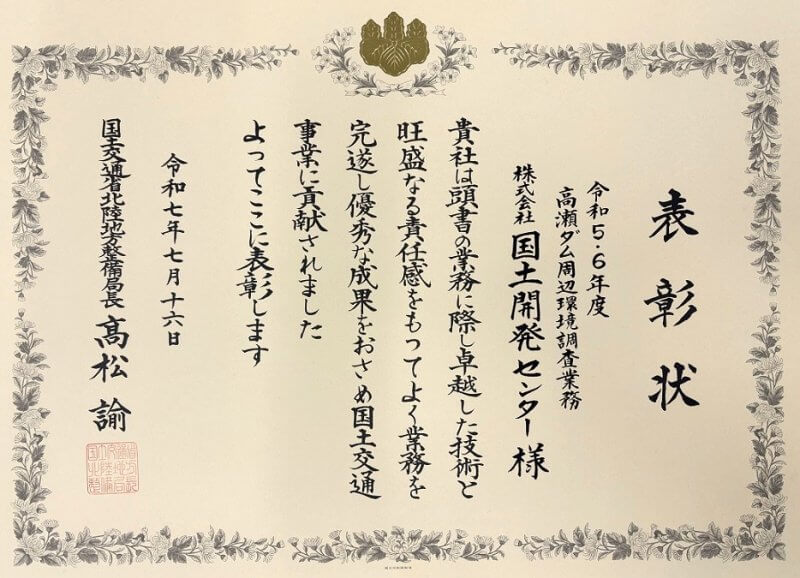 表彰状
令和5・6年度
高瀬ダム周辺環境調査業務
株式会社 国土開発センター 様
貴社は頭書の業務に際し卓越した技術と
旺盛なる責任感をもつてよく業務を
完遂し優秀な成果をおさめ国土交通
事業に貢献されました
よってここに表彰します
令和七年七月十六日
国土交通省北陸地方整備局長 髙松 諭